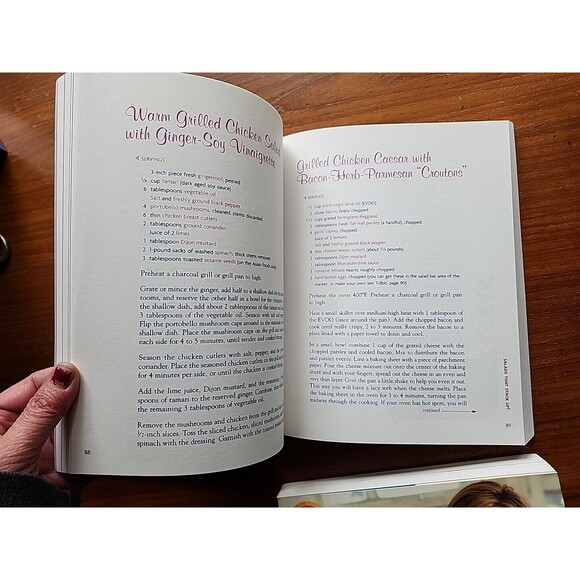 Warm Grilled Chicken Salad
with Ginger-Soy Vinaigrette
4 SERVINGS
3-inch piece fresh gingerroot, peeled
cup tamari (dark aged soy sauce)
6 tablespoons vegetable oil
Salt and freshly ground black pepper
4 portobello mushrooms, cleaned, stems discarded
6 thin chicken breast cutlets
2 tablespoons ground coriander
Juice of 2 limes
1 tablespoon Dijon mustard
2 pound sacks of washed spinach, thick stems removed
3 tablespoons toasted sesame seeds (on the Asian foods
Preheat a charcoal grill or grill pan to high.
Grate or mince the ginger, add half to a shallow dish for
rooms, and reserve the other half in a bowl for the
the shallow dish, add about 2 tablespoons of the
3 tablespoons of the vegetable oil. Season with salt
Flip the portobello mushroom caps around in the
shallow dish. Place the mushroom caps on the grill
each side for 4 to 5 minutes, until tender and cooked
Season the chicken cutlets with salt, pepper, and
coriander. Place the seasoned chicken cutlets on the grill
for 4 minutes per side, or until the chicken is cooked
Add the lime juice, Dijon mustard, and the remaining
spoons of tamari to the reserved ginger. Combine,
the remaining 3 tablespoons of vegetable oil.
Remove the mushrooms and chicken from the grill and
½-inch slices. Toss the sliced chicken, sliced mushrooms
spinach with the dressing. Garnish with the toasted
88
Grilled Chicken Caesar with
Bacon-Herb-Parmesan “Croutons”
4 SERVINGS
cup extra-virgin olive oil (EVOO)
slices bacon, finely chopped
cups grated Parmigiano-Reggiano
tablespoons fresh flat-leaf parsley (a handful), chopped
garlic cloves, chopped
Juice of 2 lemons
Salt and freshly ground black pepper
thin chicken breast cutlets (about 1½ pounds)
tablespoons Dijon mustard
tablespoon Worcestershire sauce
romaine lettuce hearts, roughly chopped
hard-boiled eggs, chopped (you can get these at the salad bar area of the
market, or make your own; see Tidbit, page 90)
Preheat the oven 400°F. Preheat a charcoal grill or grill pan
to high.
Heat a small skillet over medium-high heat with 1 tablespoon of
the EVOO (once around the pan). Add the chopped bacon and
cook until really crispy, 2 to 3 minutes. Remove the bacon to a
plate lined with a paper towel to drain and cool.
In a small bowl combine 1 cup of the grated cheese with the
chopped parsley and cooled bacon. Mix to distribute the bacon
and parsley evenly. Line a baking sheet with a piece of parchment
paper. Pour the cheese mixture out onto the center of the baking
sheet and with your fingers, spread out the cheese in an even and
very thin layer. Give the pan a little shake to help you even it out.
This way you will have a lacy look when the cheese melts. Place
the baking sheet in the oven for 3 to 4 minutes, turning the pan
midway through the cooking. If your oven has hot spots, you will
continued
SALADS THAT STACK UP!
89